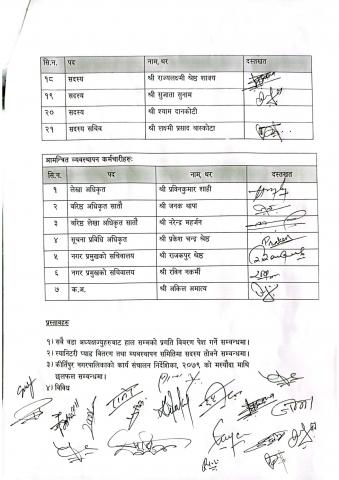 सि.न. पद नाम, थर दस्तखत
१८ सदस्य श्री राज्यलक्ष्मी श्रेष्ठ शाक्य
१९ सदस्य श्री सुजाता सुनाम
२० सदस्य श्री श्याम दानकोटी
२१ सदस्य सचिव श्री लक्ष्मी प्रसाद बास्कोटा
आमन्त्रित व्यवस्थापन कर्मचारीहरुः
सि.न. पद नाम, थर दस्तखत
१ लेखा अधिकृत श्री प्रविनकुमार शाही
२ वरिष्ठ अधिकृत सातौं श्री जनक थापा
३ वरिष्ठ लेखा अधिकृत सातौं श्री नरेन्द्र महर्जन
४ सूचना प्रविधि अधिकृत श्री प्रकेश चन्द्र श्रेष्ठ
५ नगर प्रमुखको सचिवालय श्री राजकपुर श्रेष्ठ
६ नगर प्रमुखको सचिवालय श्री रविन नकर्मी
७ क.अ. श्री अकिल अमात्य
प्रस्तावहरु
१) सबै वडा अध्यक्षज्यूहरुबाट हाल सम्मको प्रगति विवरण पेश गर्ने सम्बन्धमा।
२) स्यानिटरी प्याड वितरण तथा व्यवस्थापन समितिमा सदस्य तोक्ने सम्बन्धमा।
३) कीर्तिपुर नगरपालिकाको कार्य संचालन निर्देशिका, २०७९ को मस्यौदा माथि
छलफल सम्बन्धमा।
४) विविध